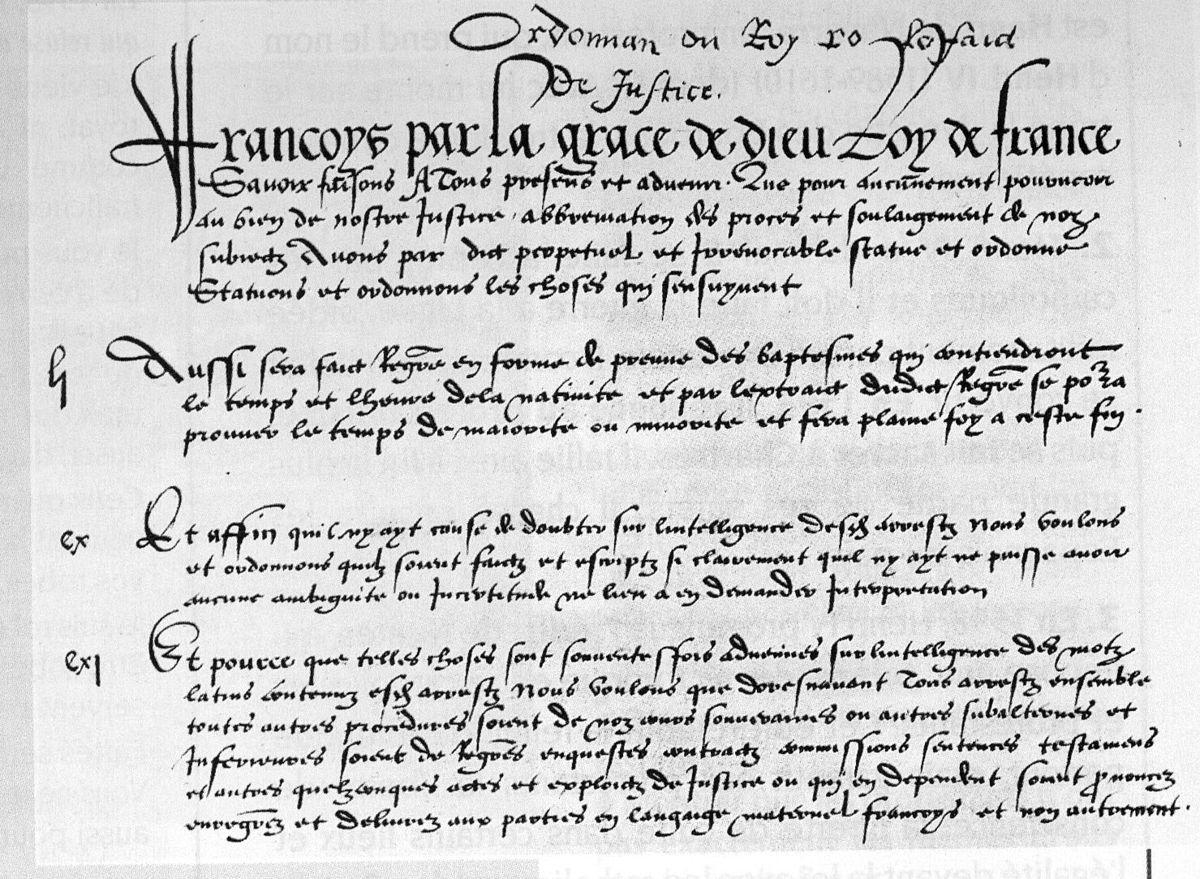 Ordonnan du Roy ro le faid
De Justice.
Francoys par la grace de dieu Roy de france
Savoir faisons A Tous presens et advenir. Que pour aucunnement pourveoir
au bien de nostre Justice, abbreviation des proces et soulaigement de noz
subiectz Avons par dict perpetuel et Irrevocable statue et ordonne
Statuons et ordonnons les choses qui sensuyvent
lj Aussi sera faict Regre en forme de preuve des baptesmes qui contiendront
le temps et lheure dela nativite et par lextraict dudict Regre se porra
prouver le temps de maiorite ou minorite et fera plaine foy a ceste fin.
cx Et affin quil ny ayt cause de doubter sur lintelligence desd arrestz Nous voulons
et ordonnons quilz soient faictz et escriptz si clairement quil ny ayt ne puisse avoir
aucune ambiguite ou Incertitude ne lieu a en demander Interpretation
cxj Et pource que telles choses sont souventesfois advenues sur lintelligence des motz
latins contenuz esd arrestz Nous voulons que doresnavant Tous arrestz ensemble
toutes autres procedures soient de noz cours souveraines ou autres subalternes et
Inferieures soient de Regres enquestes contractz commissions sentences testamens
et autres quelzconques actes et exploictz de Justice ou qui en dependent soient pnoncez
enregrez et delivrez aux parties en langaige maternel francoys et non autrement.